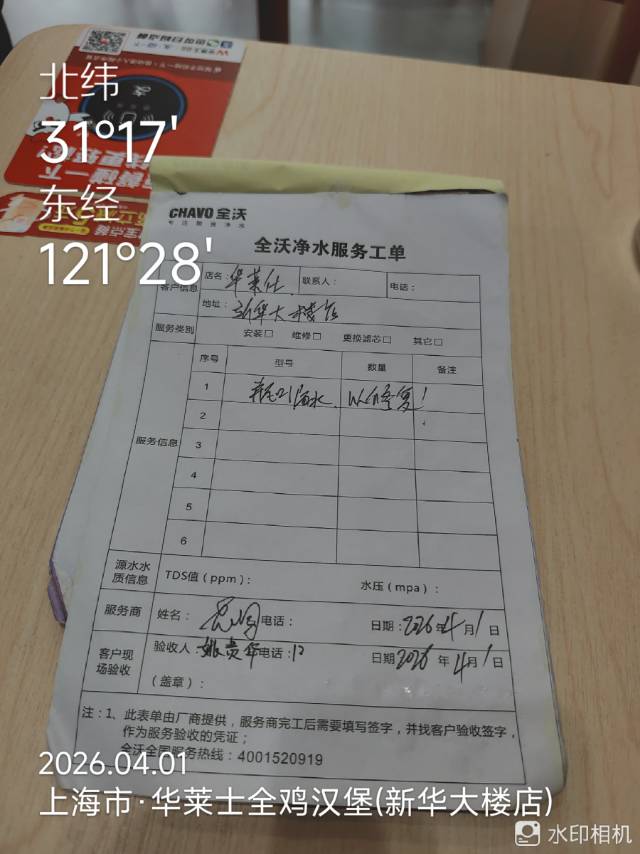 北纬
31°17'
东经
121°28'
CHAVO 全沃
专注商用净水
全沃净水服务工单
客户信息 店名：华莱仕 联系人： 电话：
地址：新华大楼店
服务类别 安装□ 维修□ 更换滤芯□ 其它□
服务信息 序号 型号 数量 备注
1 漏水 以修复！
2
3
4
5
6
源水水质信息 TDS值（ppm）： 水压（mpa）：
服务商 姓名： 电话： 日期：2026年4月1日
客户现场验收 验收人：姚贵华 电话：12 日期2026年4月1日
（盖章）：
注：1、此表单由厂商提供，服务商完工后需要填写签字，并找客户验收签字，
作为服务验收的凭证；
全沃全国服务热线：4001520919
2026.04.01
上海市·华莱士全鸡汉堡(新华大楼店)
水印相机